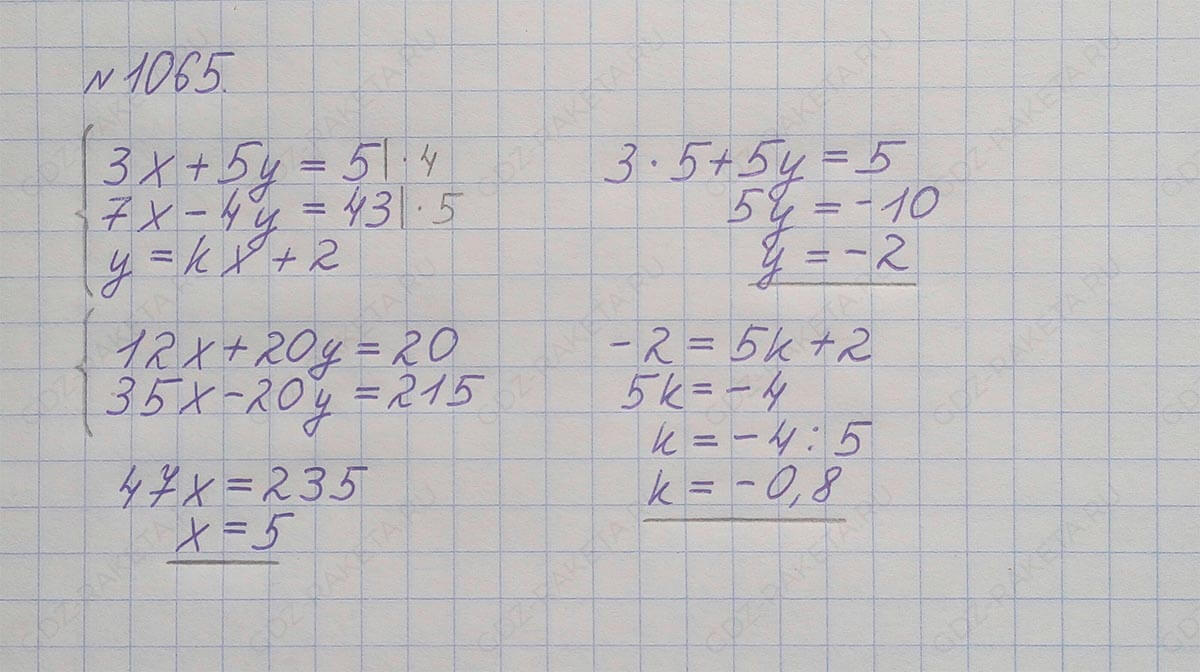 №1065.
3x+5y=5|·4
7x-4y=43|·5
y=kx+2
12x+20y=20
35x-20y=215
47x=235
x=5
3·5+5y=5
5y=-10
y=-2
-2=5k+2
5k=-4
k=-4:5
k=-0,8
GDZ-RAKETA.RU